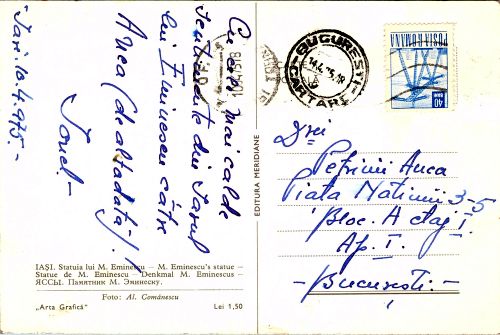 Cu cele mai calde
sentimente din Iașul
lui Eminescu către
Anca (de altădată)!
Ionel-
Iași. 10.4.975.-
IAȘI. Statuia lui M. Eminescu — M. Eminescu's statue —
Statue de M. Eminescu — Denkmal M. Eminescus —
ЯССЫ. Памятник М. Эминеску.
Foto: Al. Comănescu
„Arta Grafică" Lei 1,50
EDITURA MERIDIANE
BUCUREȘTI
CARTARE
POSTA ROMANA
40
Drei
Petrimi Anca
Piata Natiunii 3-5
Bloc. A etaj I.
Ap. I.
- București -